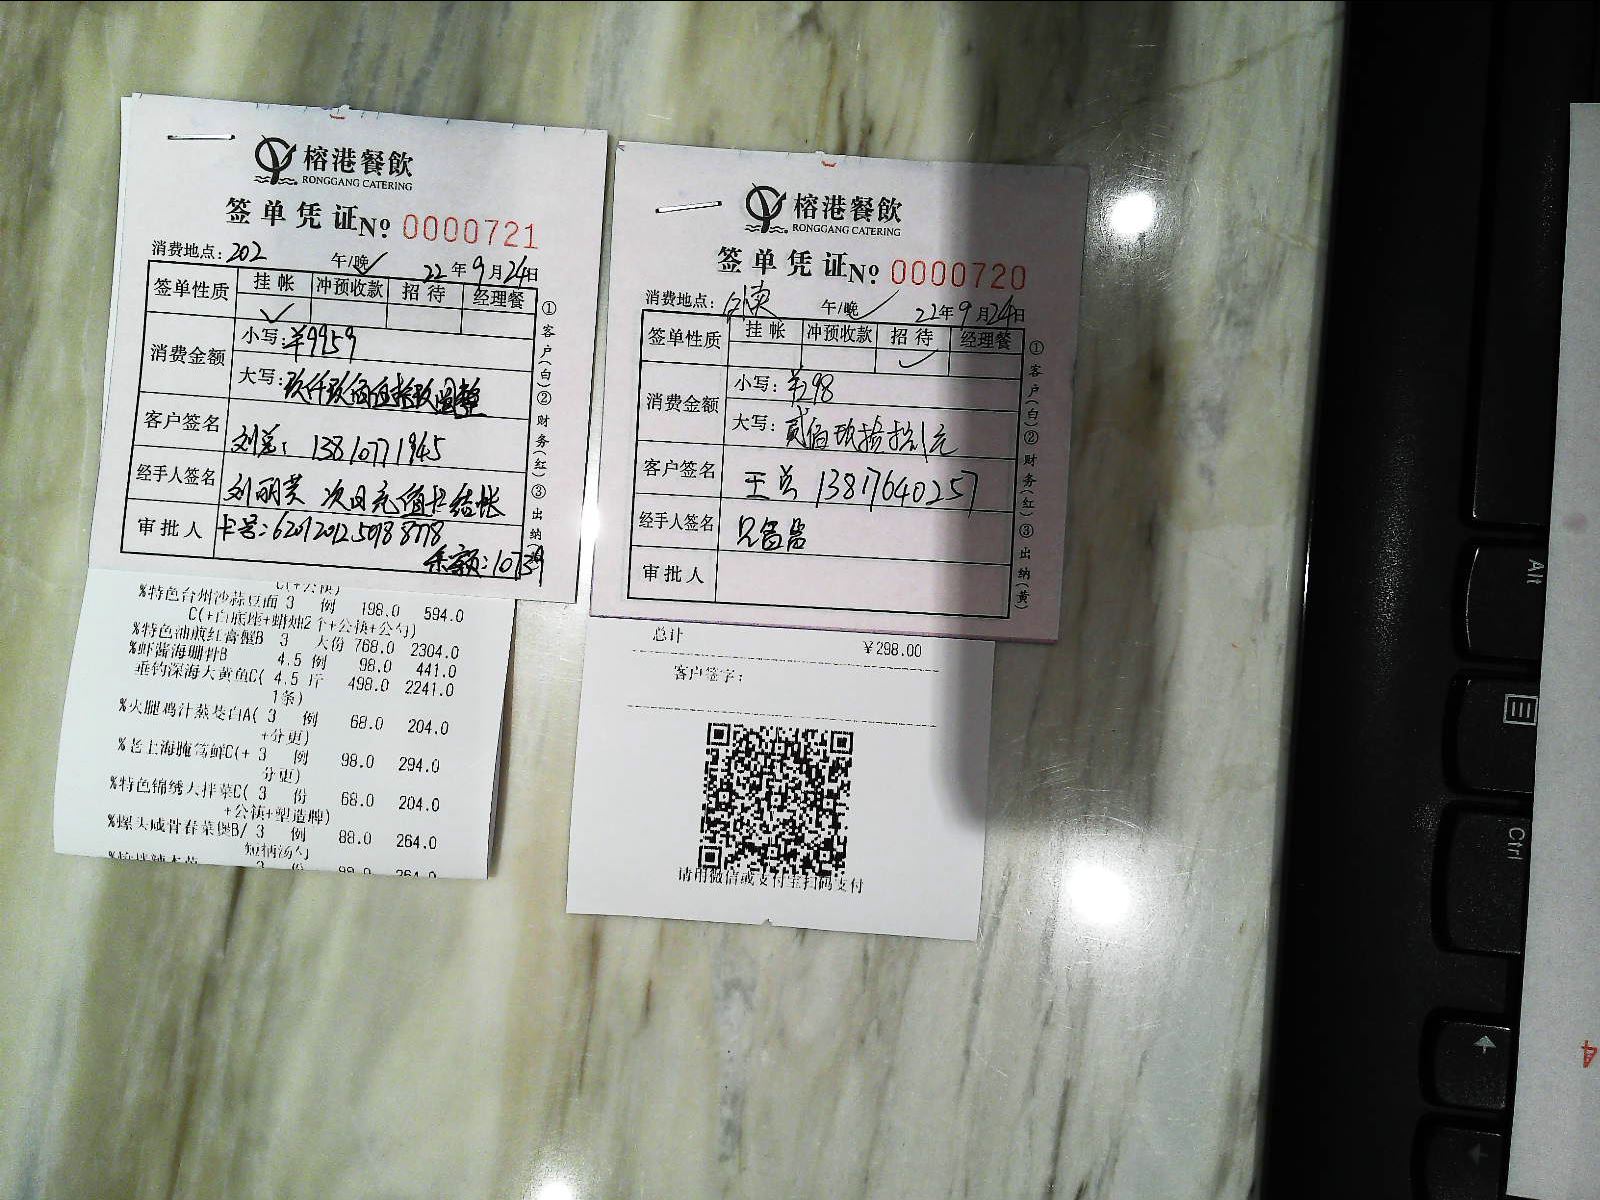 榕港餐飲
RONGGANG CATERING
签单凭证 No 0000721
消费地点：202 午/晚✓ 22年9月24日
签单性质 挂帐 冲预收款 招待 经理餐
✓
消费金额 小写：¥9959
大写：玖仟玖佰伍拾玖圆整
客户签名 刘总： 13810771945
经手人签名 刘丽英 次日充值卡结帐
审批人 卡号：6201201250988778
余额：10739
①客户(白)②财务(红)③出纳
C(+公筷)
%特色台州沙蒜豆面 3 例 198.0 594.0
C(+白底座+蜡烛2个+公筷+公勺)
%特色油煎红膏蟹B 3 大份 768.0 2304.0
%虾酱海珊骨B 4.5 例 98.0 441.0
垂钓深海大黄鱼C( 4.5 斤 498.0 2241.0
1条)
%火腿鸡汁蒸娄白A( 3 例 68.0 204.0
+分更)
%老上海腌笃鲜C(+ 3 例 98.0 294.0
分更)
%特色锦绣大拌菜C( 3 份 68.0 204.0
+公筷+塑造牌)
%螺头咸骨春菜煲B/ 3 例 88.0 264.0
短柄汤勺
3 份 264.0
榕港餐飲
RONGGANG CATERING
签单凭证 No 0000720
消费地点： 午/晚✓ 22年9月24日
签单性质 挂帐 冲预收款 招待 经理餐
✓
消费金额 小写：¥298
大写：贰佰玖拾捌元
客户签名 王总 13817640257
经手人签名
审批人
①客户(白)②财务(红)③出纳(黄)
总计 ¥298.00
客户签字：
请用微信或支付宝扫码支付
Alt
Ctrl